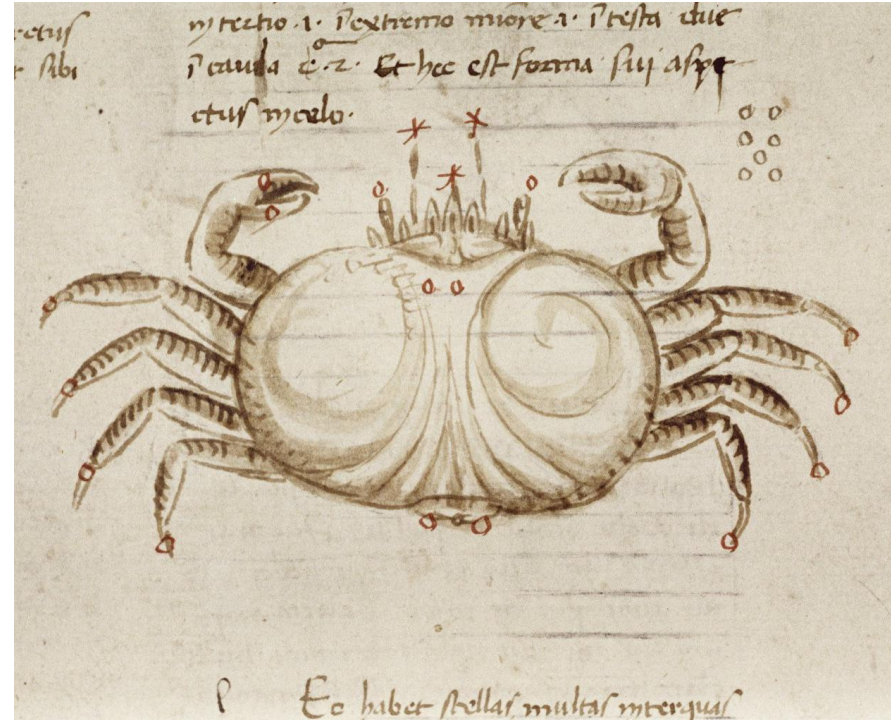 ectus
t sibi
in tertio .1. ı̄ extremo minore .1. ı̄ testa due
ı̄ cauda .2. Et hec est forma sui aspe
ctus in celo.
Eo habet stellas multas inter quas